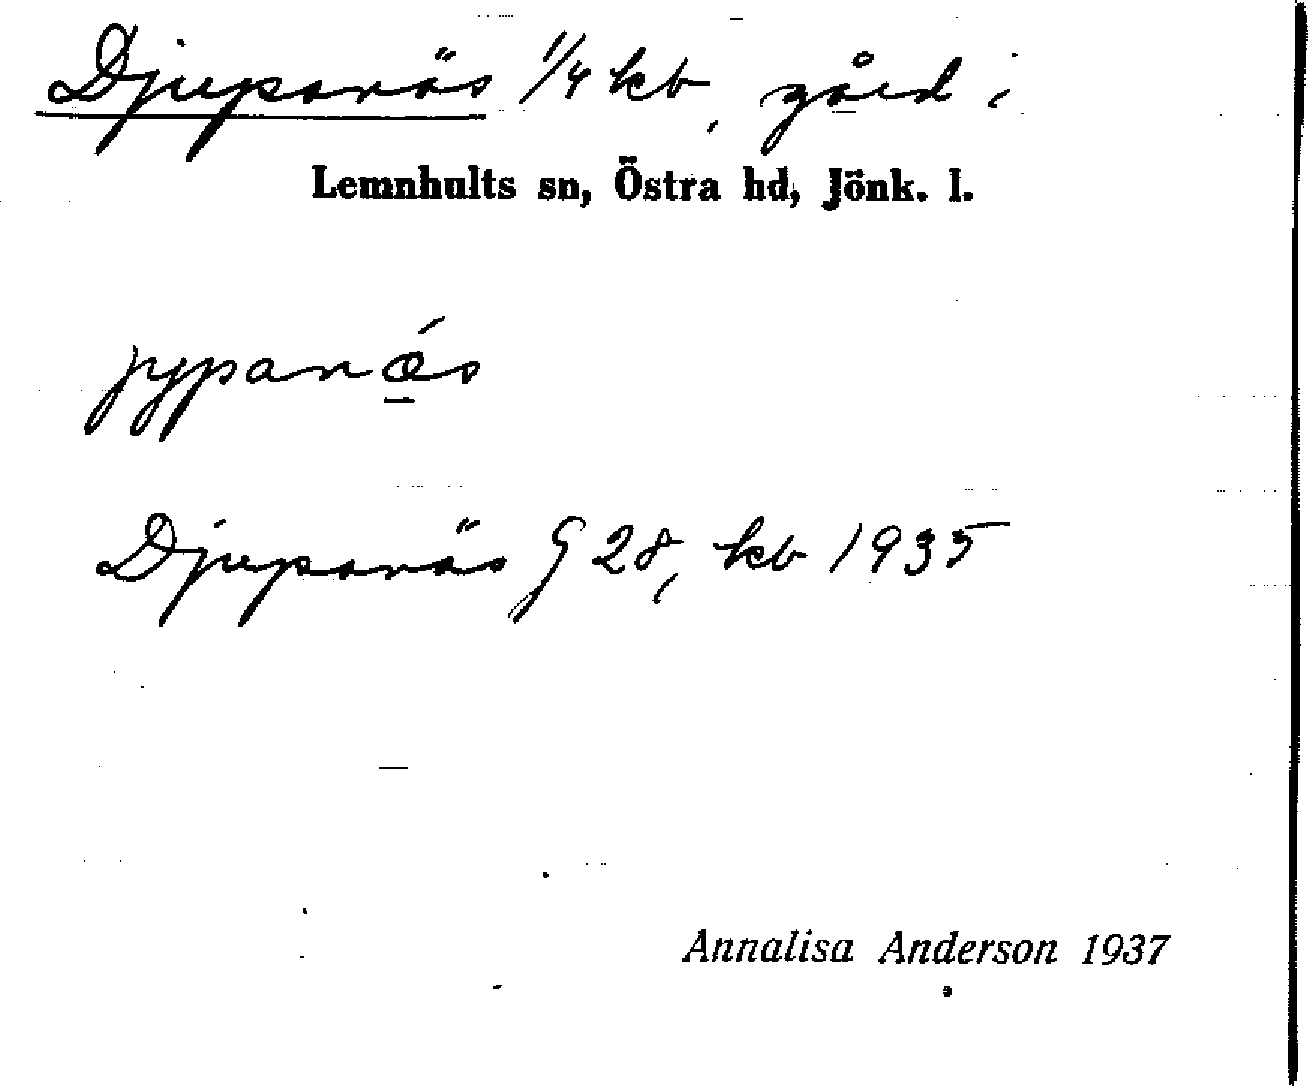 Djupanäs 1/4 kb, gård i
Lemnhults sn, Östra hd, Jönk. l.
jypanǽs
Djupanäs G 28, kb 1935
Annalisa Anderson 1937